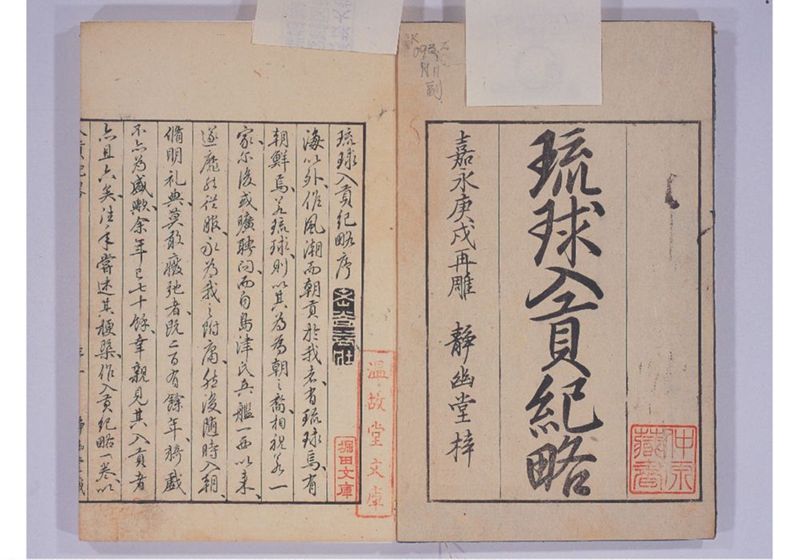 琉球入貢紀略
嘉永庚戌再雕 靜幽堂梓
藏書
琉球入貢紀略序
海以外作風潮而朝貢於我者有琉球焉有
朝鮮焉若琉球則以其為為朝之裔相視若一
家尓後或曠聘问而自島津氏兵艦一西以来
遂靡然從服永為我之附庸然後随時入朝
脩明礼典莫敢癈弛者既二百有餘年猗戯
不亦為盛歟余年已七十餘幸親見其入貢者
且六矣往年嘗述其梗槩作入貢紀略一卷以
温故堂文庫
堀田文庫